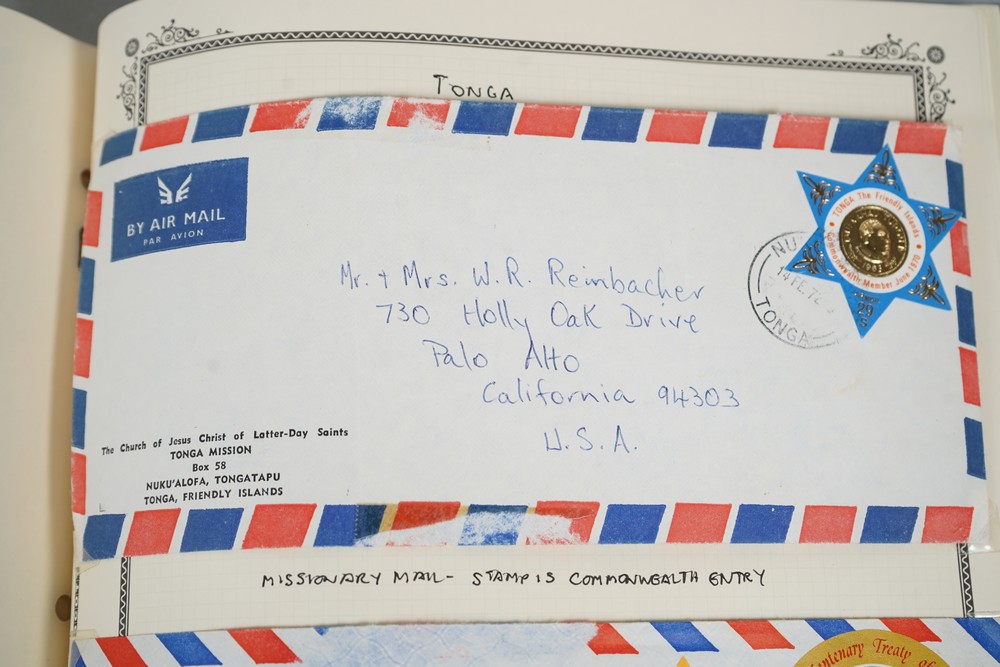 TONGA
BY AIR MAIL
PAR AVION
TONGA The Friendly Islands
Commonwealth Member June 1970
29
S
NU
14 FE 72
TONGA
Mr. + Mrs. W.R. Reimbacher
730 Holly Oak Drive
Palo Alto
California 94303
U.S.A.
The Church of Jesus Christ of Latter-Day Saints
TONGA MISSION
Box 58
NUKU'ALOFA, TONGATAPU
TONGA, FRIENDLY ISLANDS
MISSIONARY MAIL - STAMP IS COMMONWEALTH ENTRY
Centenary Treaty of